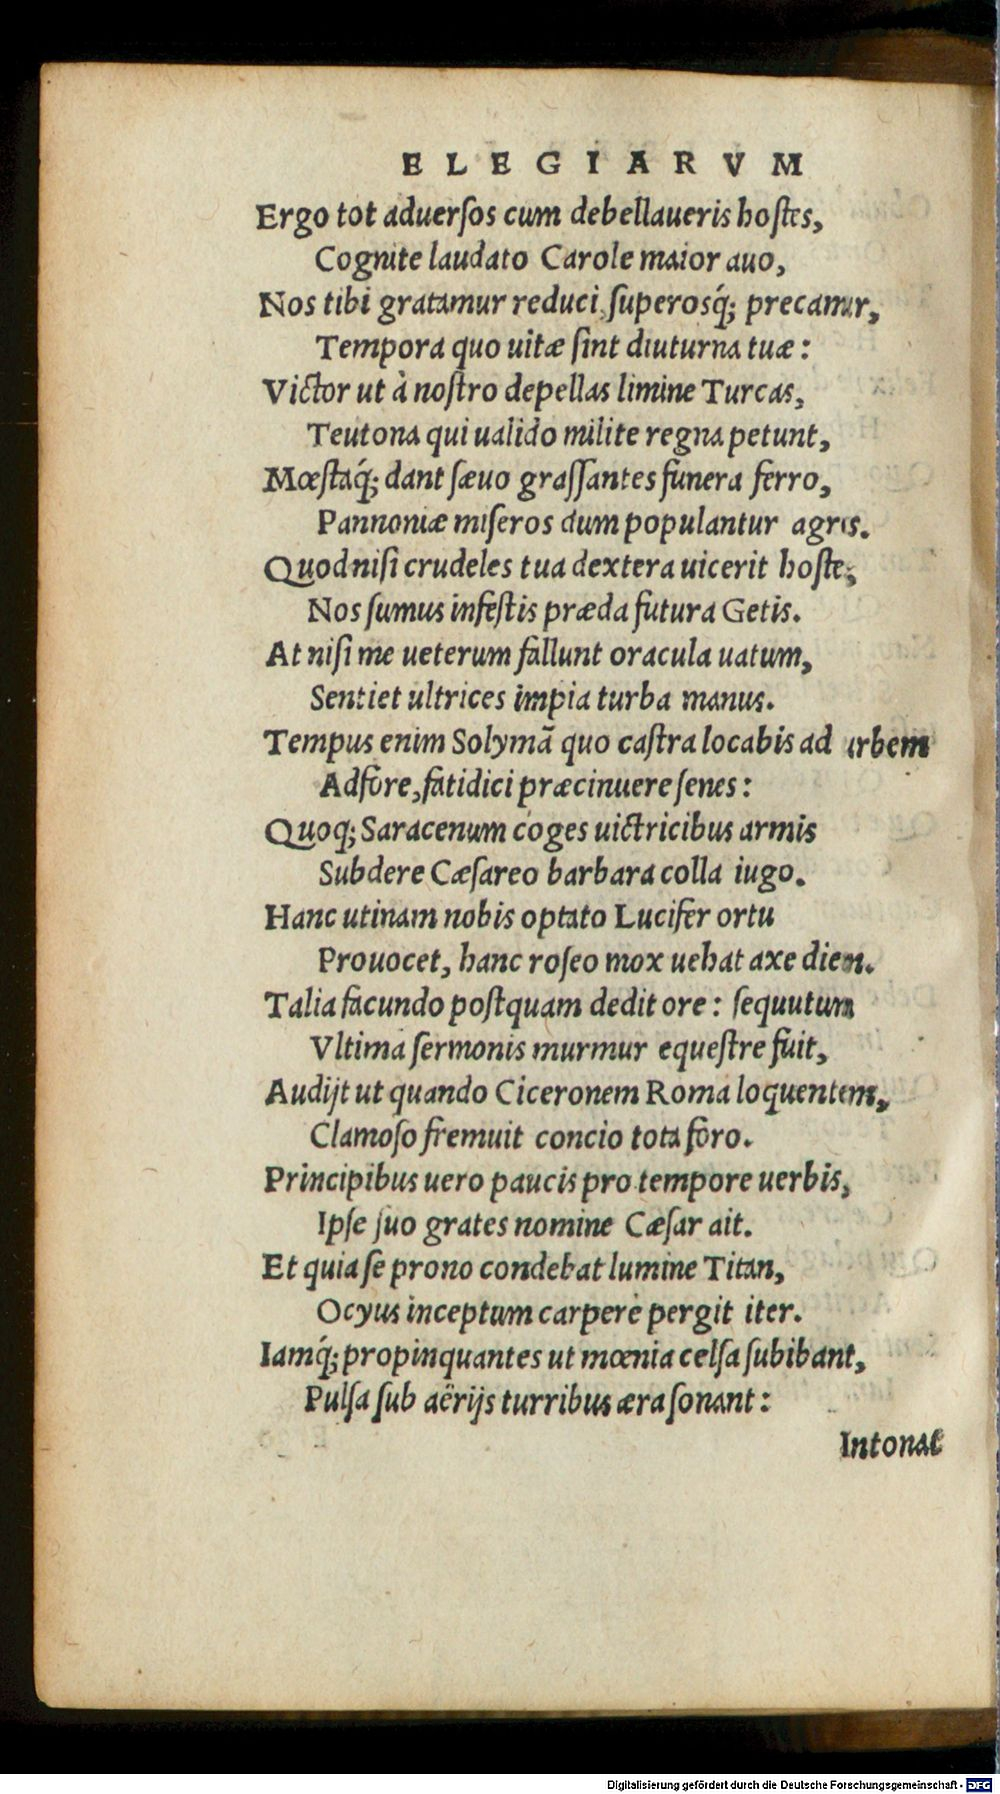 ELEGIARVM
Ergo tot aduerſos cum debellaueris hoſtes,
Cognite laudato Carole maior auo,
Nos tibi gratamur reduci, ſuperosq́; precamur,
Tempora quo uitæ ſint diuturna tuæ:
Victor ut à noſtro depellas limine Turcas,
Teutona qui ualido milite regna petunt,
Mœſtaq́; dant ſæuo graſſantes funera ferro,
Pannoniæ miſeros dum populantur agris.
Quod niſi crudeles tua dextera uicerit hoſtes,
Nos ſumus infeſtis præda futura Getis.
At niſi me ueterum fallunt oracula uatum,
Sentiet ultrices impia turba manus.
Tempus enim Solymã quo caſtra locabis ad urbem
Adfore, fatidici præcinuere ſenes:
Quoq; Saracenum coges uictricibus armis
Subdere Cæſareo barbara colla iugo.
Hanc utinam nobis optato Lucifer ortu
Prouocet, hanc roſeo mox uehat axe diem.
Talia facundo poſtquam dedit ore: ſequutum
Vltima ſermonis murmur equeſtre fuit,
Audijt ut quando Ciceronem Roma loquentem,
Clamoſo fremuit concio tota foro.
Principibus uero paucis pro tempore uerbis,
Ipſe ſuo grates nomine Cæſar ait.
Et quia ſe prono condebat lumine Titan,
Ocyus inceptum carpere pergit iter.
Iamq́; propinquantes ut mœnia celſa ſubibant,
Pulſa ſub aërijs turribus æra ſonant:
Intonat
Digitalisierung gefördert durch die Deutsche Forschungsgemeinschaft - DFG